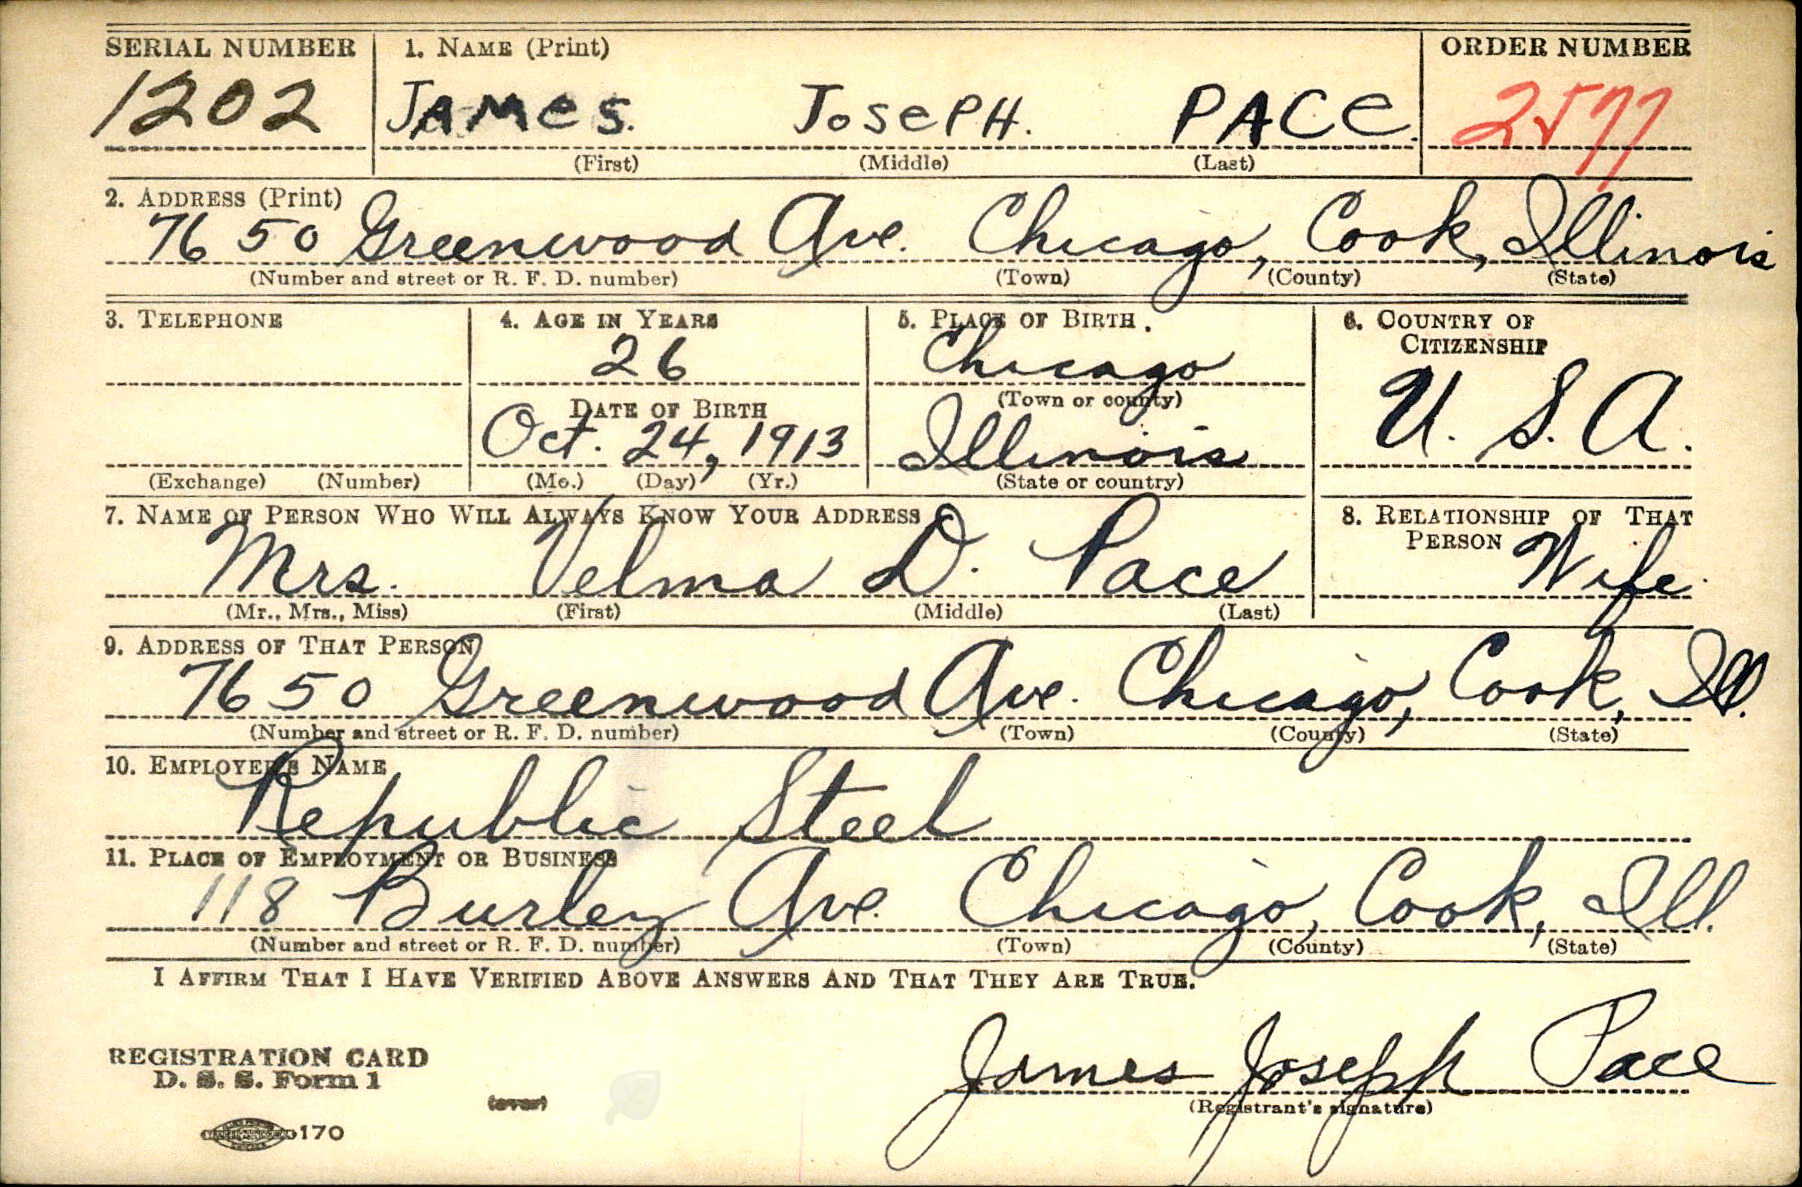 SERIAL NUMBER 1. NAME (Print) ORDER NUMBER
1202 JAMES. JOSEPH. PACE. 2577
(First) (Middle) (Last)
2. ADDRESS (Print)
7650 Greenwood Ave. Chicago, Cook, Illinois
(Number and street or R. F. D. number) (Town) (County) (State)
3. TELEPHONE 4. AGE IN YEARS 5. PLACE OF BIRTH 6. COUNTRY OF CITIZENSHIP
26 Chicago
DATE OF BIRTH (Town or county) U. S. A.
Oct. 24, 1913 Illinois
(Exchange) (Number) (Mo.) (Day) (Yr.) (State or country)
7. NAME OF PERSON WHO WILL ALWAYS KNOW YOUR ADDRESS 8. RELATIONSHIP OF THAT PERSON
Mrs. Velma D. Pace Wife
(Mr., Mrs., Miss) (First) (Middle) (Last)
9. ADDRESS OF THAT PERSON
7650 Greenwood Ave. Chicago, Cook, Ill.
(Number and street or R. F. D. number) (Town) (County) (State)
10. EMPLOYER'S NAME
Republic Steel
11. PLACE OF EMPLOYMENT OR BUSINESS
118 Burley Ave. Chicago, Cook, Ill.
(Number and street or R. F. D. number) (Town) (County) (State)
I AFFIRM THAT I HAVE VERIFIED ABOVE ANSWERS AND THAT THEY ARE TRUE.
James Joseph Pace
(Registrant's signature)
REGISTRATION CARD
D. S. S. Form 1
(over)
170